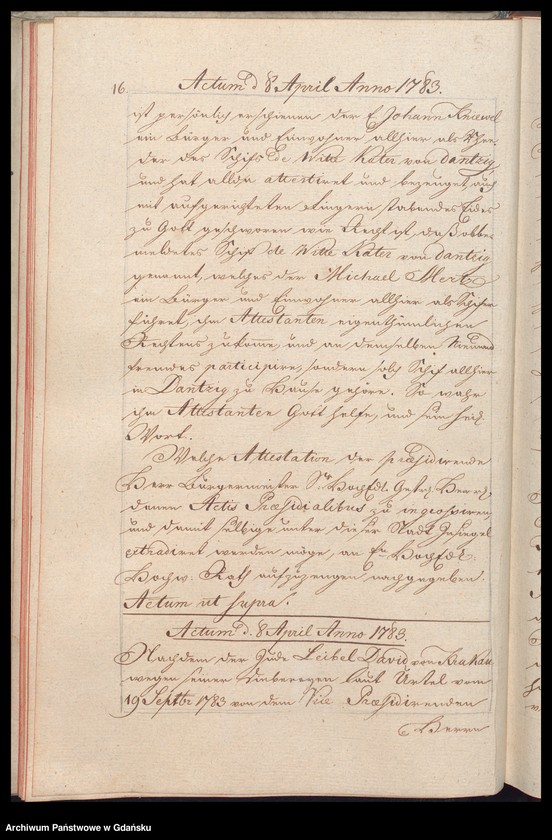 16. Actum d 8 April Anno 1783.
ist persönlich erschienen der E. Johann Kniewel
ein Bürger und Einwohner allhier als Rhee-
der des Schifs de Witte Kater von dantzig,
und hat allda attestiret und bezeuget, auch
mit aufgerichteten Fingern stabendes Eides
zu Gott geschworen wie Recht ist, daß obbe-
meldetes Schif de Witte Kater von dantzig
genannt, welches der Michael Mentz
ein Bürger und Einwohner allhier als Schiffer
führet, ihm Attestanten eigenthümlichen
Rechtens zukome, und an demselben Niemand
fremdes participire, sondern solch Schif allhier
in Dantzig zu Hause gehöre. So wahr
ihm Attestanten Gott helfe, und sein heil.
Wort.
Welche Attestation der præsidirende
Herr Bürgermeister Sr Hochedl. Gestr. Herrl.
denen Actis Præsidialibus zu ingrossiren,
und damit selbige unter dieser Stadt Insiegel
extradiret werden möge, an En Hochedl.
Hochw. Rath aufzuzeugen nachgegeben.
Actum ut supra.
Actum d. 8 April Anno 1783.
Nachdem der Jude Leibel David von Krakau
wegen seiner laut Urtel vom
19 Septbr 1783 von dem Vice Præsidirenden
Herrn
Archiwum Państwowe w Gdańsku